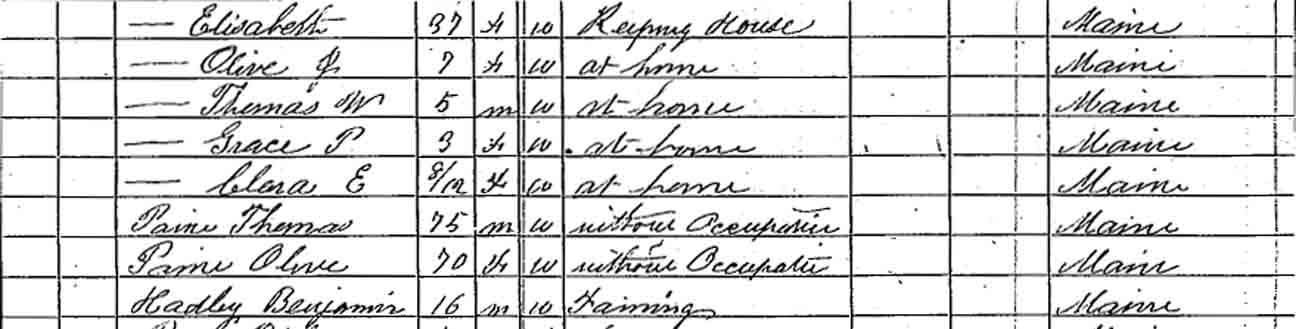 — Elisabeth 37 f w Keeping House Maine
— Olive J 7 f w at home Maine
— Thomas W 5 m w at home Maine
— Grace P 3 f w at home Maine
— Clara E 8/12 f w at home Maine
Paine Thomas 75 m w without Occupation Maine
Paine Olive 70 f w without Occupation Maine
Hadley Benjamin 16 m w Farming Maine